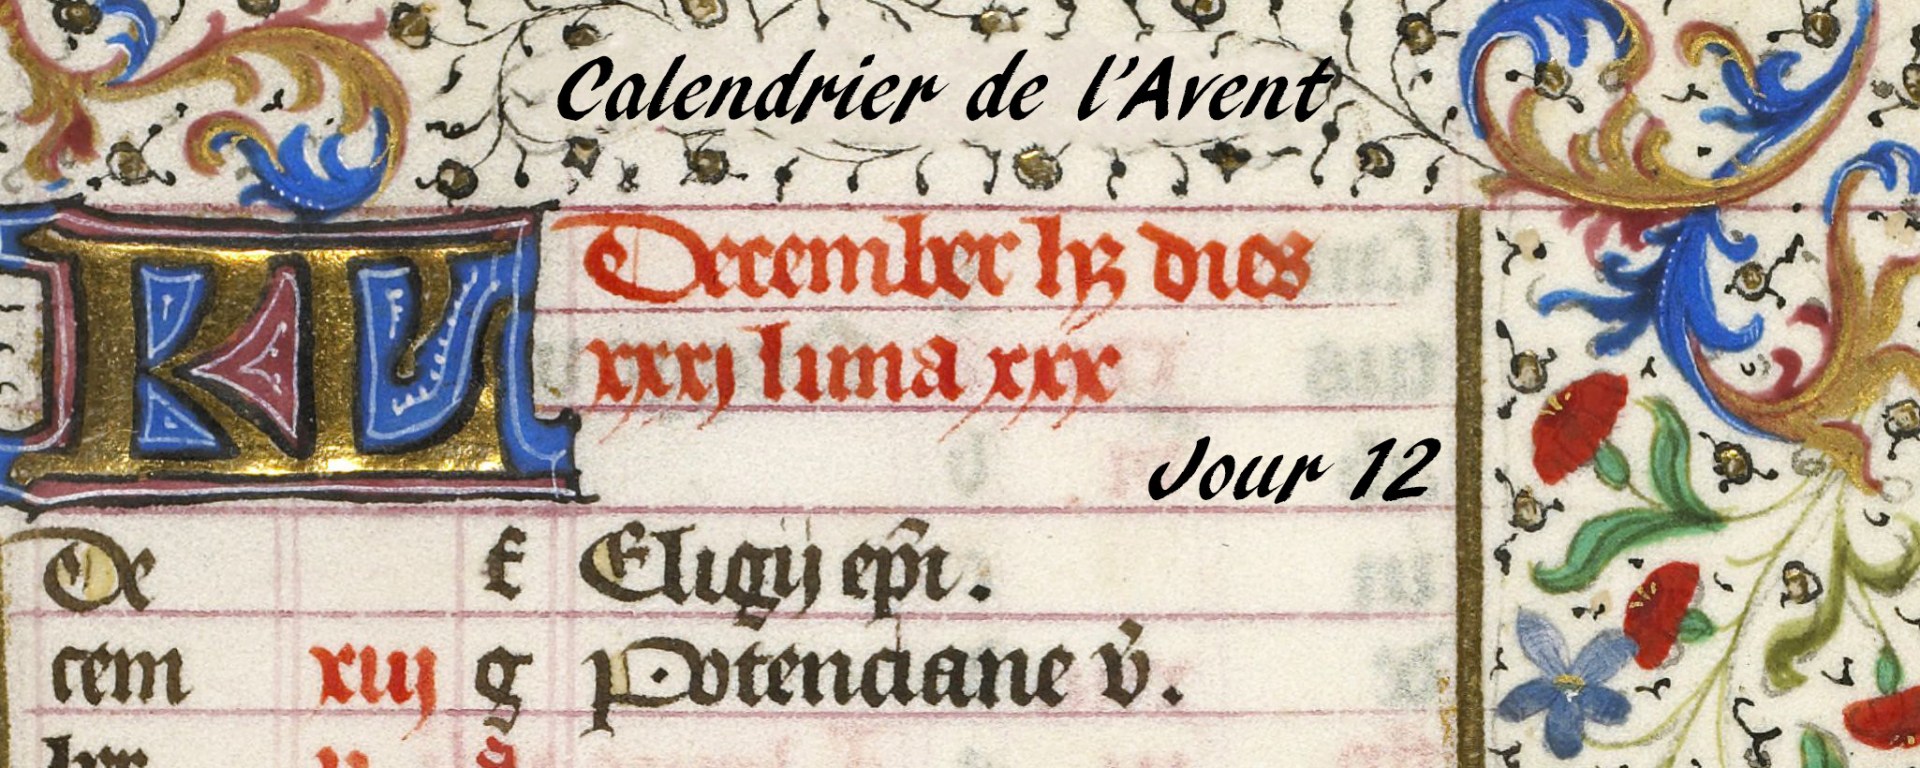 Calendrier de l'Avent
KL
December hꝫ dies
xxxj luna xxx
Jour 12
De f Eligij ep̄i.
cem xiij g Potenciane v̄.